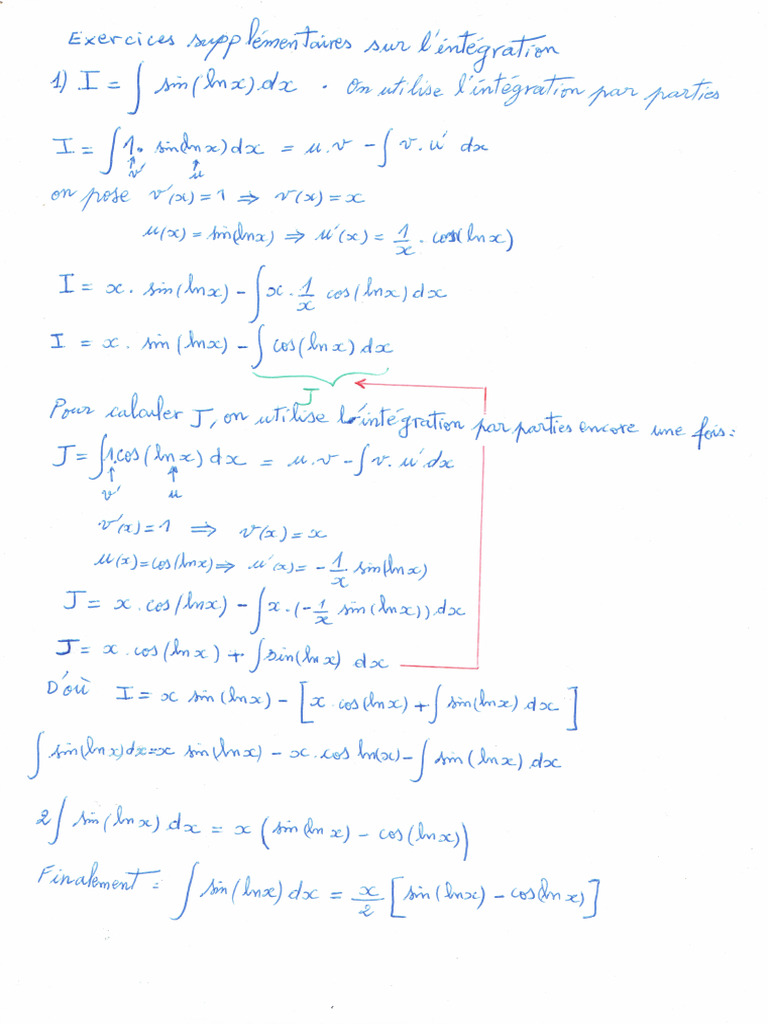 Exercices supplémentaires sur l'intégration
1) I = ∫ sin(lnx).dx . On utilise l'intégration par parties
I = ∫ 1. sin(lnx)dx = u.v - ∫ v.u' dx
v' u
on pose v'(x) = 1 ⇒ v(x) = x
u(x) = sin(lnx) ⇒ u'(x) = 1/x . cos(lnx)
I = x. sin(lnx) - ∫ x. 1/x cos(lnx)dx
I = x. sin(lnx) - ∫ cos(lnx)dx
J
Pour calculer J, on utilise l'intégration par parties encore une fois:
J = ∫ 1.cos(lnx)dx = u.v - ∫ v.u'dx
v' u
v'(x) = 1 ⇒ v(x) = x
u(x) = cos(lnx) ⇒ u'(x) = - 1/x sin(lnx)
J = x.cos(lnx) - ∫ x.(-1/x sin(lnx)).dx
J = x.cos(lnx) + ∫ sin(lnx) dx
D'où I = x sin(lnx) - [x.cos(lnx) + ∫ sin(lnx)dx]
∫ sin(lnx)dx = x sin(lnx) - x.cos ln(x) - ∫ sin(lnx)dx
2∫ sin(lnx)dx = x(sin(lnx) - cos(lnx))
Finalement : ∫ sin(lnx)dx = x/2 [sin(lnx) - cos(lnx)]